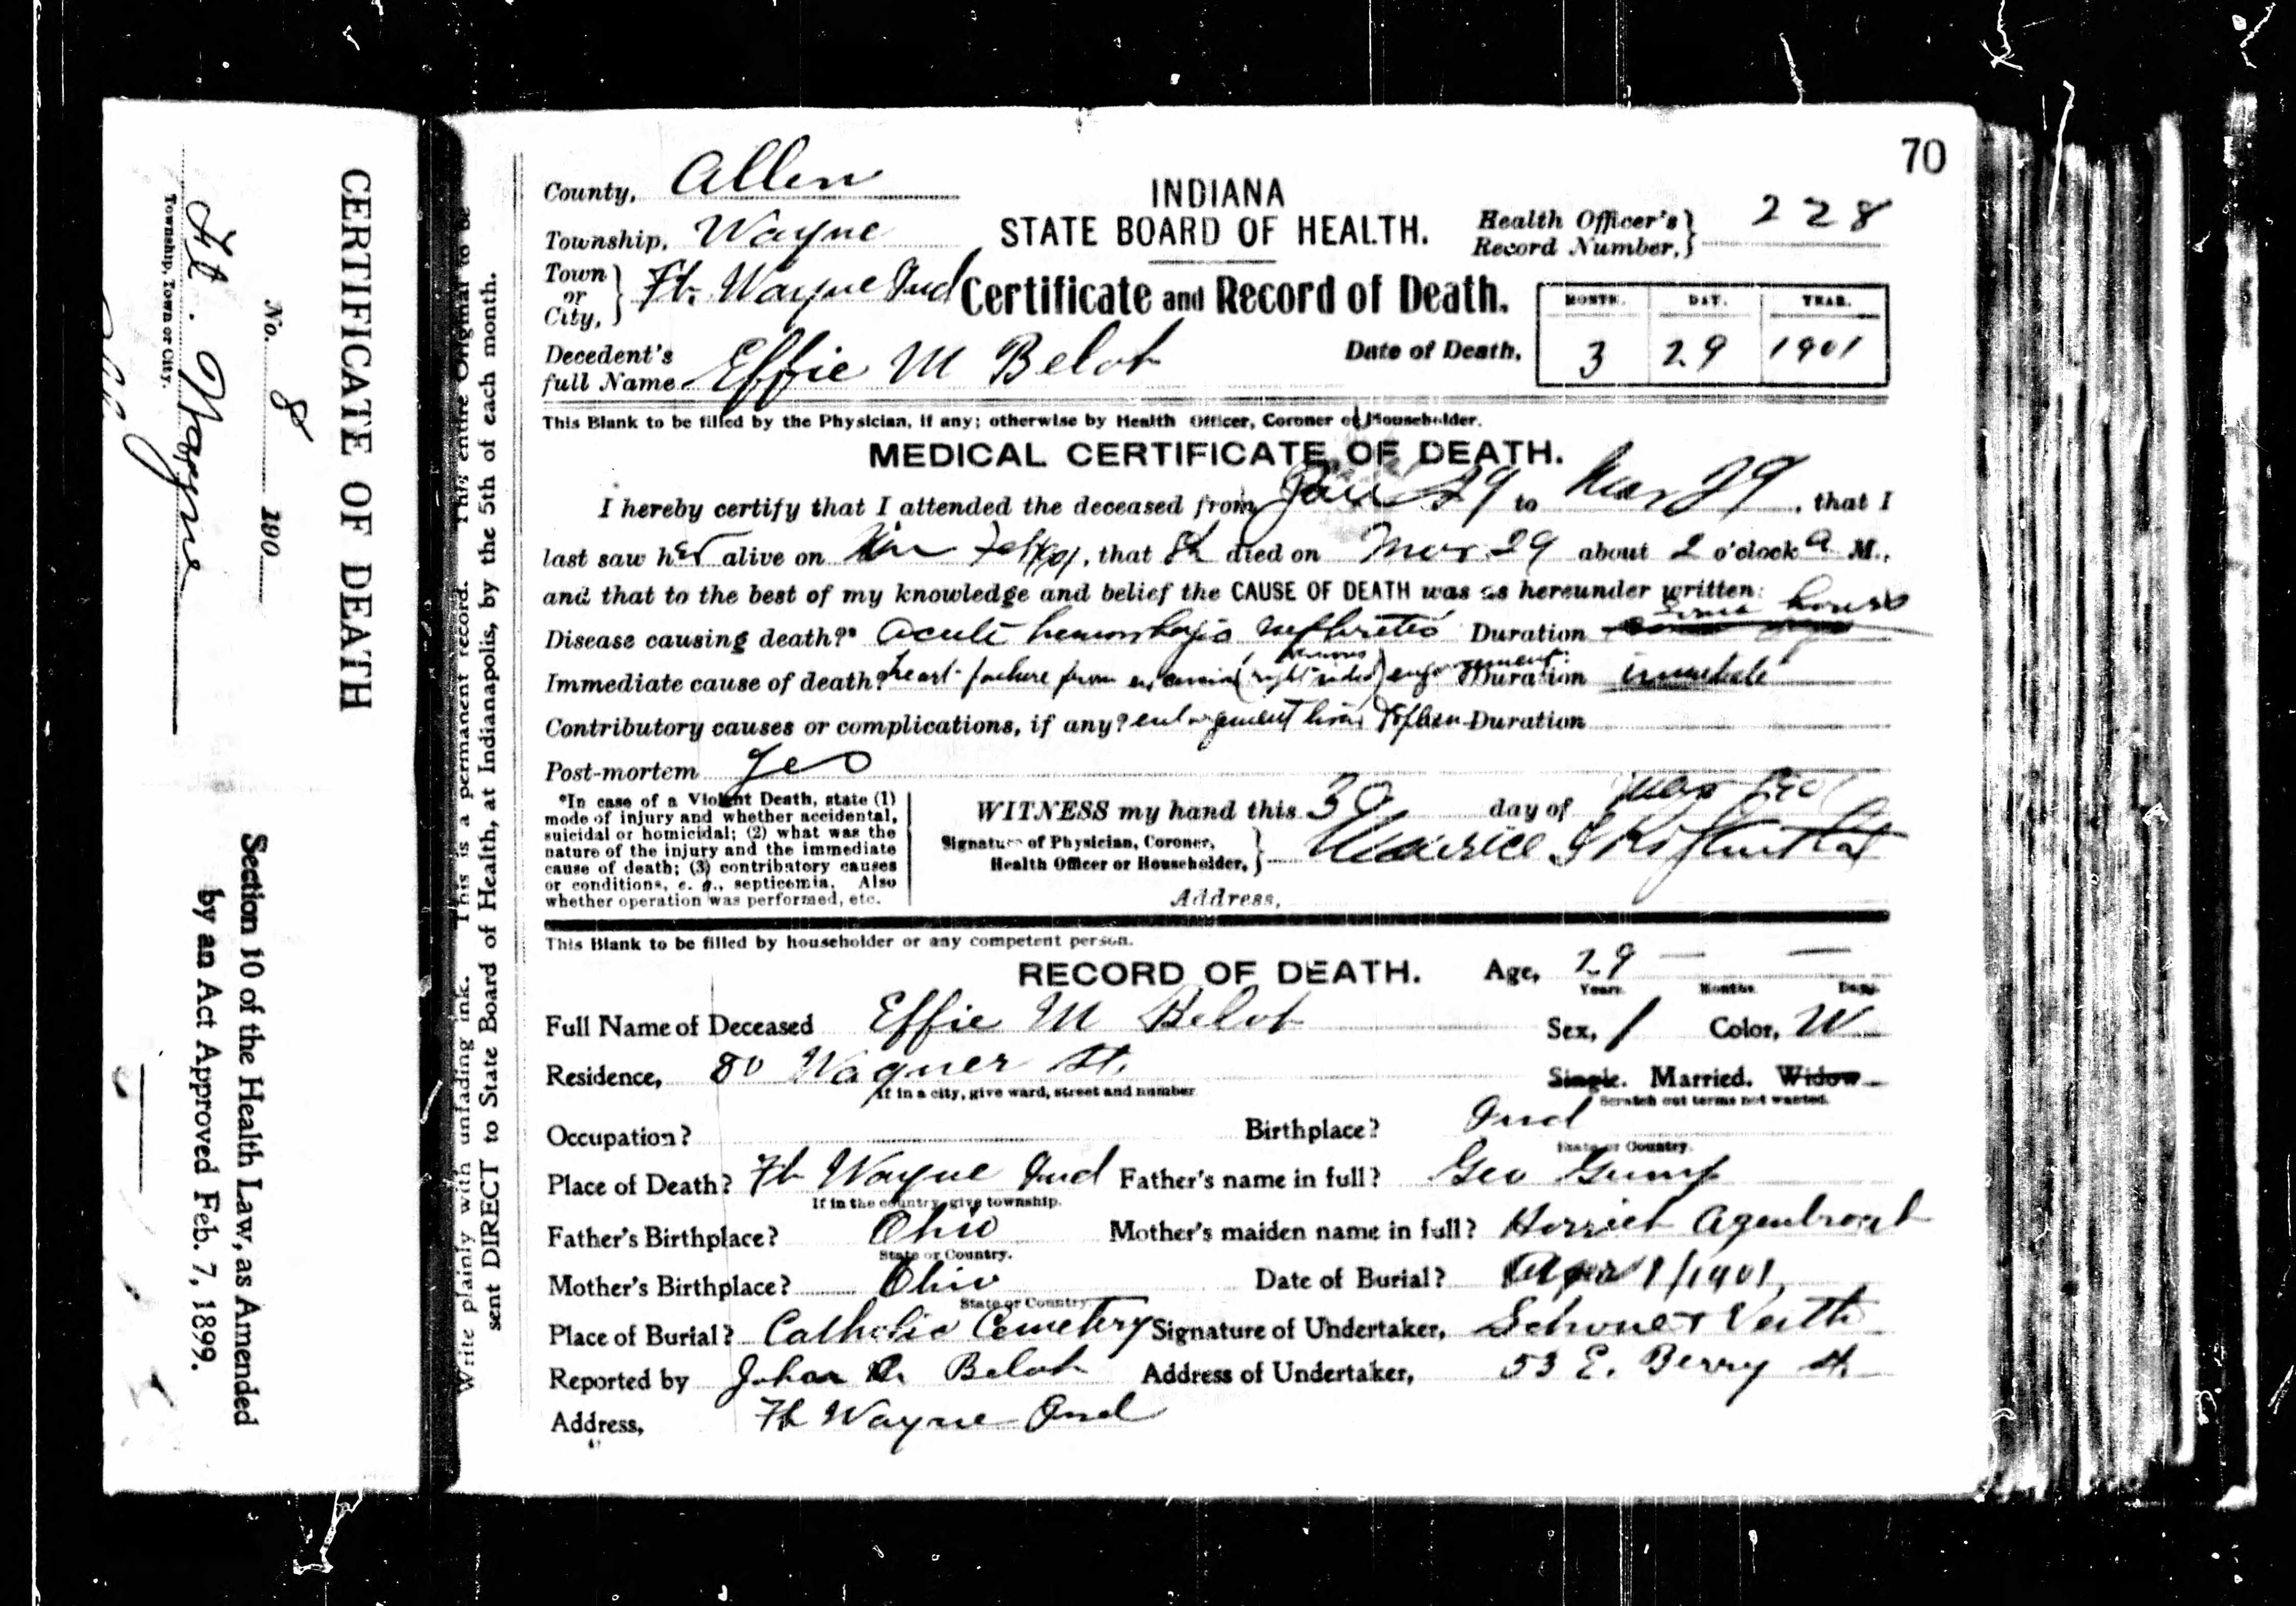 70
County, Allen
INDIANA
STATE BOARD OF HEALTH.
Health Officer's Record Number, 228
Township, Wayne
Town or City, Ft. Wayne Ind
Certificate and Record of Death.
Decedent's full Name Effie M Belot
Date of Death,
MONTH. DAY. YEAR.
3 29 1901
This Blank to be filled by the Physician, if any; otherwise by Health Officer, Coroner or Householder.
MEDICAL CERTIFICATE OF DEATH.
I hereby certify that I attended the deceased from 29 to Mar 29, that I
last saw her alive on, that Sh died on Mar 29 about 2 o'clock a M.,
and that to the best of my knowledge and belief the CAUSE OF DEATH was as hereunder written:
Disease causing death?* acute hemorrhagic nephritis Duration hours
Immediate cause of death? heart failure from (right sided) Duration
Contributory causes or complications, if any? enlargement Duration
Post-mortem Yes
*In case of a Violent Death, state (1)
mode of injury and whether accidental,
suicidal or homicidal; (2) what was the
nature of the injury and the immediate
cause of death; (3) contributory causes
or conditions, e. g., septicemia. Also
whether operation was performed, etc.
WITNESS my hand this 30 day of Mar 1901
Signature of Physician, Coroner,
Health Officer or Householder, Maurice I
Address,
This Blank to be filled by householder or any competent person.
RECORD OF DEATH.
Age, 29 — —
Years Months Days
Full Name of Deceased Effie M Belot
Sex, f Color, W
Residence, 80 Wagner St.
If in a city, give ward, street and number
Single. Married. Widow
Scratch out terms not wanted.
Occupation?
Birthplace? Ind
State or Country.
Place of Death? Ft Wayne Ind
If in the country give township.
Father's name in full? Geo Gump
Father's Birthplace? Ohio
State or Country.
Mother's maiden name in full? Harriet
Mother's Birthplace? Ohio
State or Country
Date of Burial? Apr 1/1901
Place of Burial? Catholic Cemetery
Signature of Undertaker, Schone & Veith
Reported by John Belot
Address of Undertaker, 53 E. Berry St.
Address, Ft Wayne Ind
Write plainly with unfading ink. This is a permanent record. This entire Original to be
sent DIRECT to State Board of Health, at Indianapolis, by the 5th of each month.
CERTIFICATE OF DEATH
No. 8 190
Ft. Wayne
Township, Town or City.
Section 10 of the Health Law, as Amended
by an Act Approved Feb. 7, 1899.